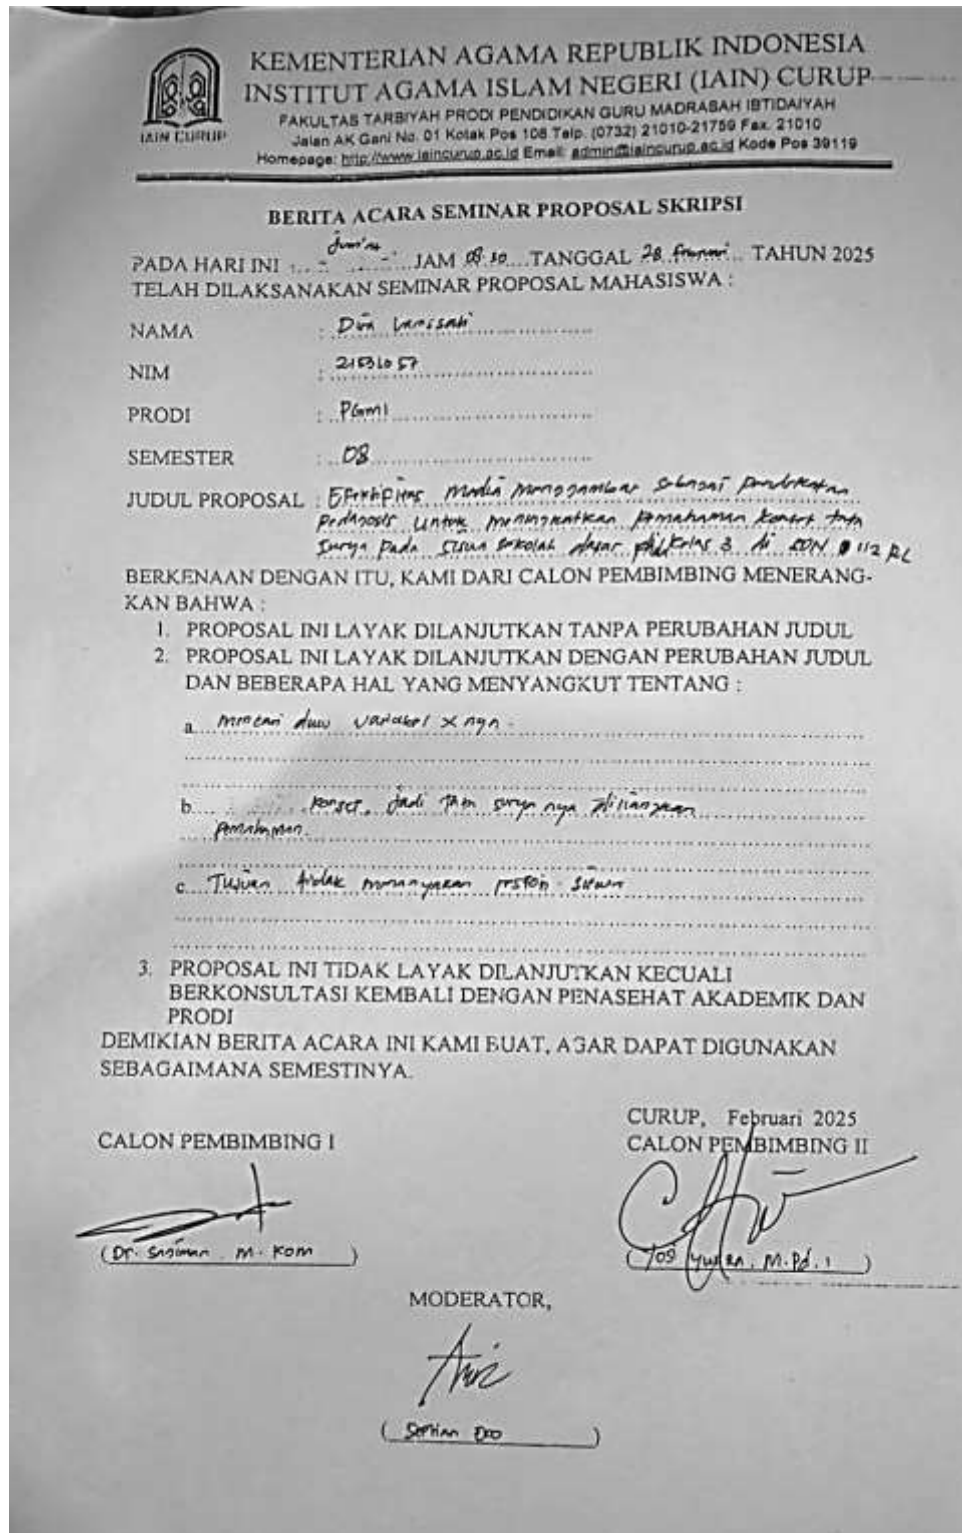 KEMENTERIAN AGAMA REPUBLIK INDONESIA
INSTITUT AGAMA ISLAM NEGERI (IAIN) CURUP
FAKULTAS TARBIYAH PRODI PENDIDIKAN GURU MADRASAH IBTIDAIYAH
Jalan AK Gani No. 01 Kotak Pos 108 Telp. (0732) 21010-21759 Fax. 21010
Homepage: http://www.iaincurup.ac.id Email: admin@iaincurup.ac.id Kode Pos 39119
IAIN CURUP
BERITA ACARA SEMINAR PROPOSAL SKRIPSI
PADA HARI INI : JAM TANGGAL 28 TAHUN 2025
TELAH DILAKSANAKAN SEMINAR PROPOSAL MAHASISWA :
NAMA :
NIM :
PRODI : PGMI
SEMESTER : 08
JUDUL PROPOSAL : Media menggambar sebagai
Pedagogis untuk meningkatkan pemahaman tata
surya pada sekolah dasar kelas 3 di SDN 112 RL
BERKENAAN DENGAN ITU, KAMI DARI CALON PEMBIMBING MENERANG-
KAN BAHWA :
1. PROPOSAL INI LAYAK DILANJUTKAN TANPA PERUBAHAN JUDUL
2. PROPOSAL INI LAYAK DILANJUTKAN DENGAN PERUBAHAN JUDUL
DAN BEBERAPA HAL YANG MENYANGKUT TENTANG :
a. mencari variabel x nya
b. jadi surya nya
pemahaman
c. Tujuan tidak menanyakan
3. PROPOSAL INI TIDAK LAYAK DILANJUTKAN KECUALI
BERKONSULTASI KEMBALI DENGAN PENASEHAT AKADEMIK DAN
PRODI
DEMIKIAN BERITA ACARA INI KAMI BUAT, AGAR DAPAT DIGUNAKAN
SEBAGAIMANA SEMESTINYA.
CURUP, Februari 2025
CALON PEMBIMBING I CALON PEMBIMBING II
(Dr. M. Kom) (M.Pd.I)
MODERATOR,